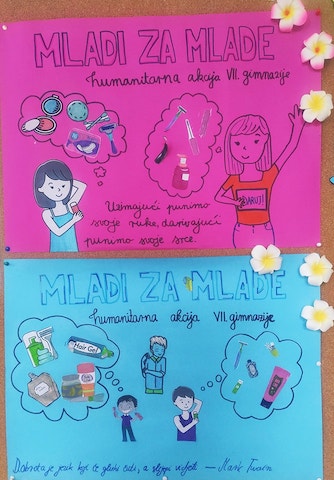 MLADI ZA MLADE
humanitarna akcija VII. gimnazije
DARUJ!
Uzimajući punimo
svoje ruke, darivajući
punimo svoje srce.
MLADI ZA MLADE
humanitarna akcija VII. gimnazije
Hair Gel
Dobrota je jezik koji će gluhi čuti, a slijepi vidjeti — Mark Twain